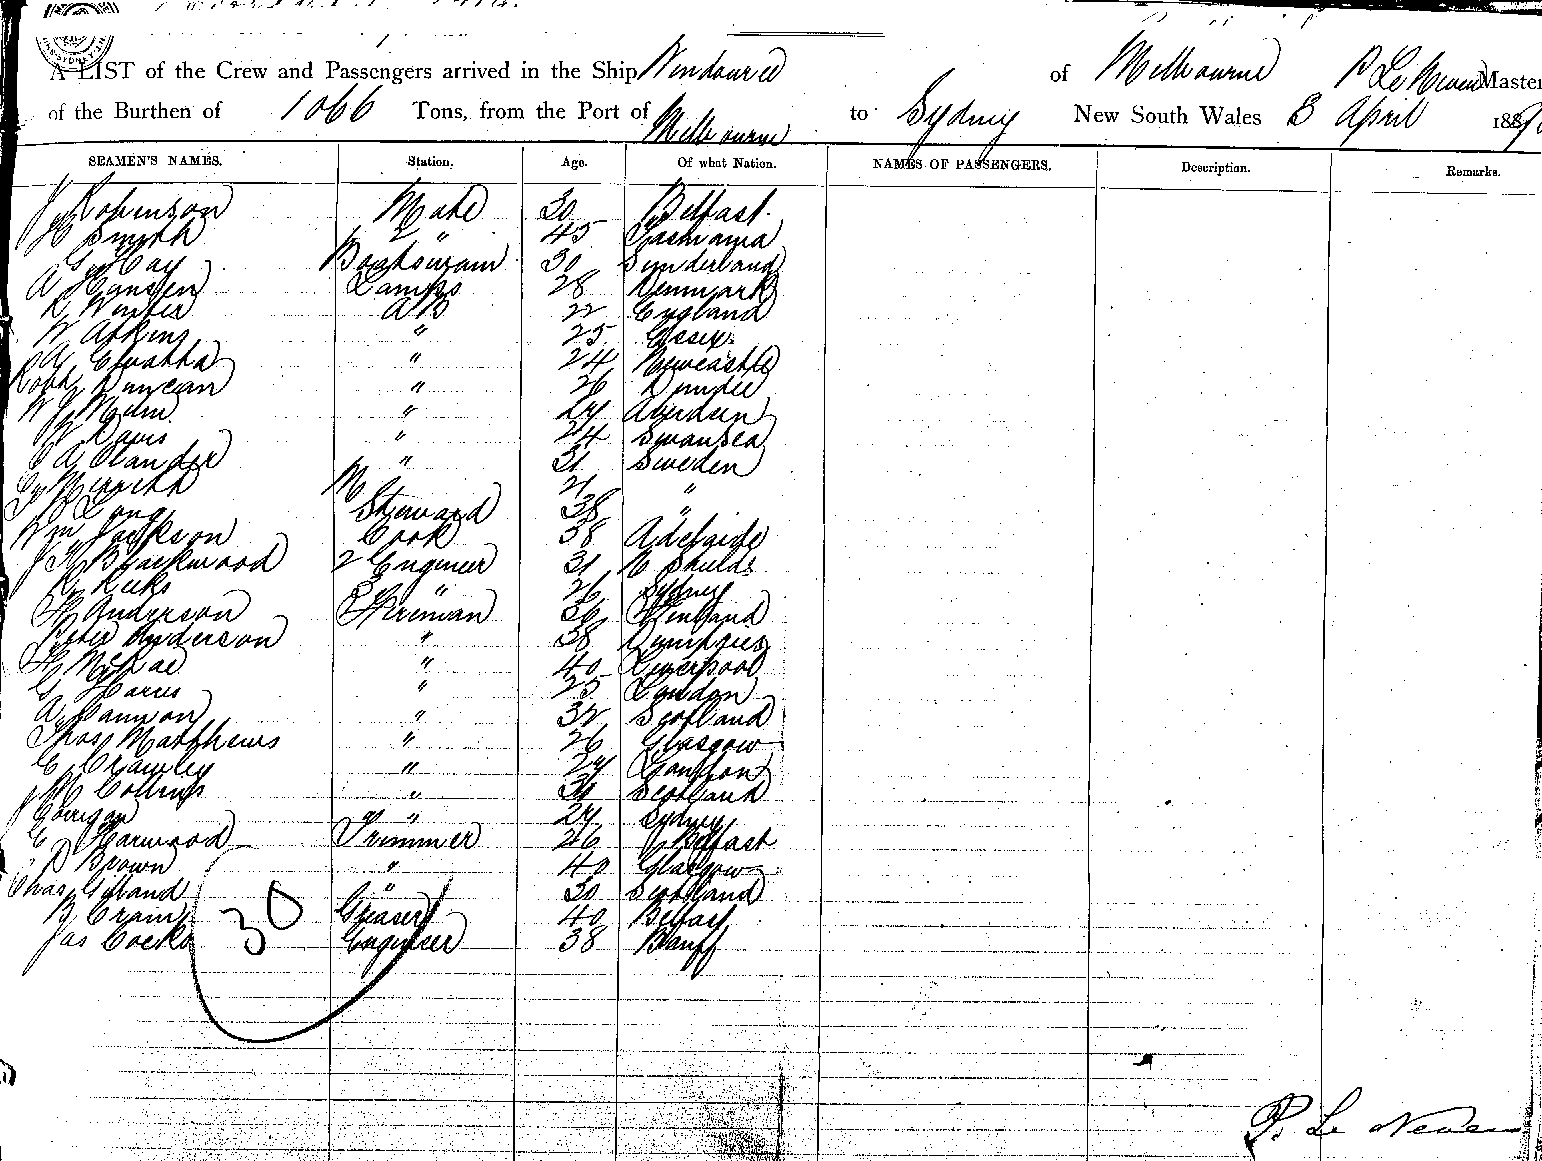 A LIST of the Crew and Passengers arrived in the Ship Windouree of Melbourne P Le Neven Master
of the Burthen of 1066 Tons, from the Port of Melbourne to Sydney New South Wales 3 April 1889
SEAMEN'S NAMES. Station. Age. Of what Nation. NAMES OF PASSENGERS. Description. Remarks.
J Robinson Mate 30 Belfast
H Smith 2 " 45 Tasmania
G Hay Boatswain 30 Sunderland
A Hansen Lamps 28 Denmark
R Winter AB 22 England
W Atkins " 25 Essex
A " 24 Newcastle
Robt Duncan " 26 Dundee
W " 24 Aberdeen
W Davis " 24 Swansea
A Olander " 31 Sweden
21 "
Long Steward 38 "
Wm Jackson Cook 38 Adelaide
J H Blackwood 2 Engineer 31 N Shields
R Ricks 3 " 26 Sydney
H Anderson Fireman 36 Finland
Peter Anderson " 38 Dumfries
H McRae " 40 Liverpool
G Harris " 25 London
A Cannon " 32 Scotland
Thos Matthews " 26 Glasgow
C Crawley " 24 London
Collins " 30 Scotland
J Corrigan " 24 Sydney
C Harwood Trimmer 26 Belfast
D Brown " 40 Glasgow
Chas Giband " 30 Scotland
B Crain Greaser 40 Belfast
Jas Cocks Engineer 38 Banff
30
P. Le Neven